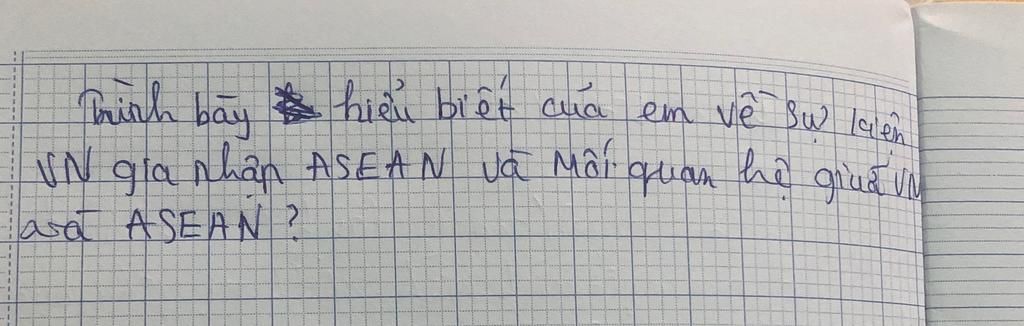 Trình bày hiểu biết của em về sự kiện
VN gia nhập ASEAN và Mối quan hệ giữa VN
và ASEAN?